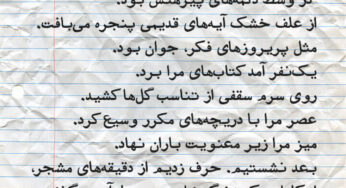 در وسط دگمه‌های پیرهنش بود.
از علف خشک آیه‌های قدیمی پنجره می‌بافت.
مثل پریروزهای فکر، جوان بود.
یک‌نفر آمد کتاب‌های مرا برد.
روی سرم سقفی از تناسب گل‌ها کشید.
عصر مرا با دریچه‌های مکرر وسیع کرد.
میز مرا زیر معنویت باران نهاد.
بعد نشستیم. حرف زدیم از دقیقه‌های مشجر،